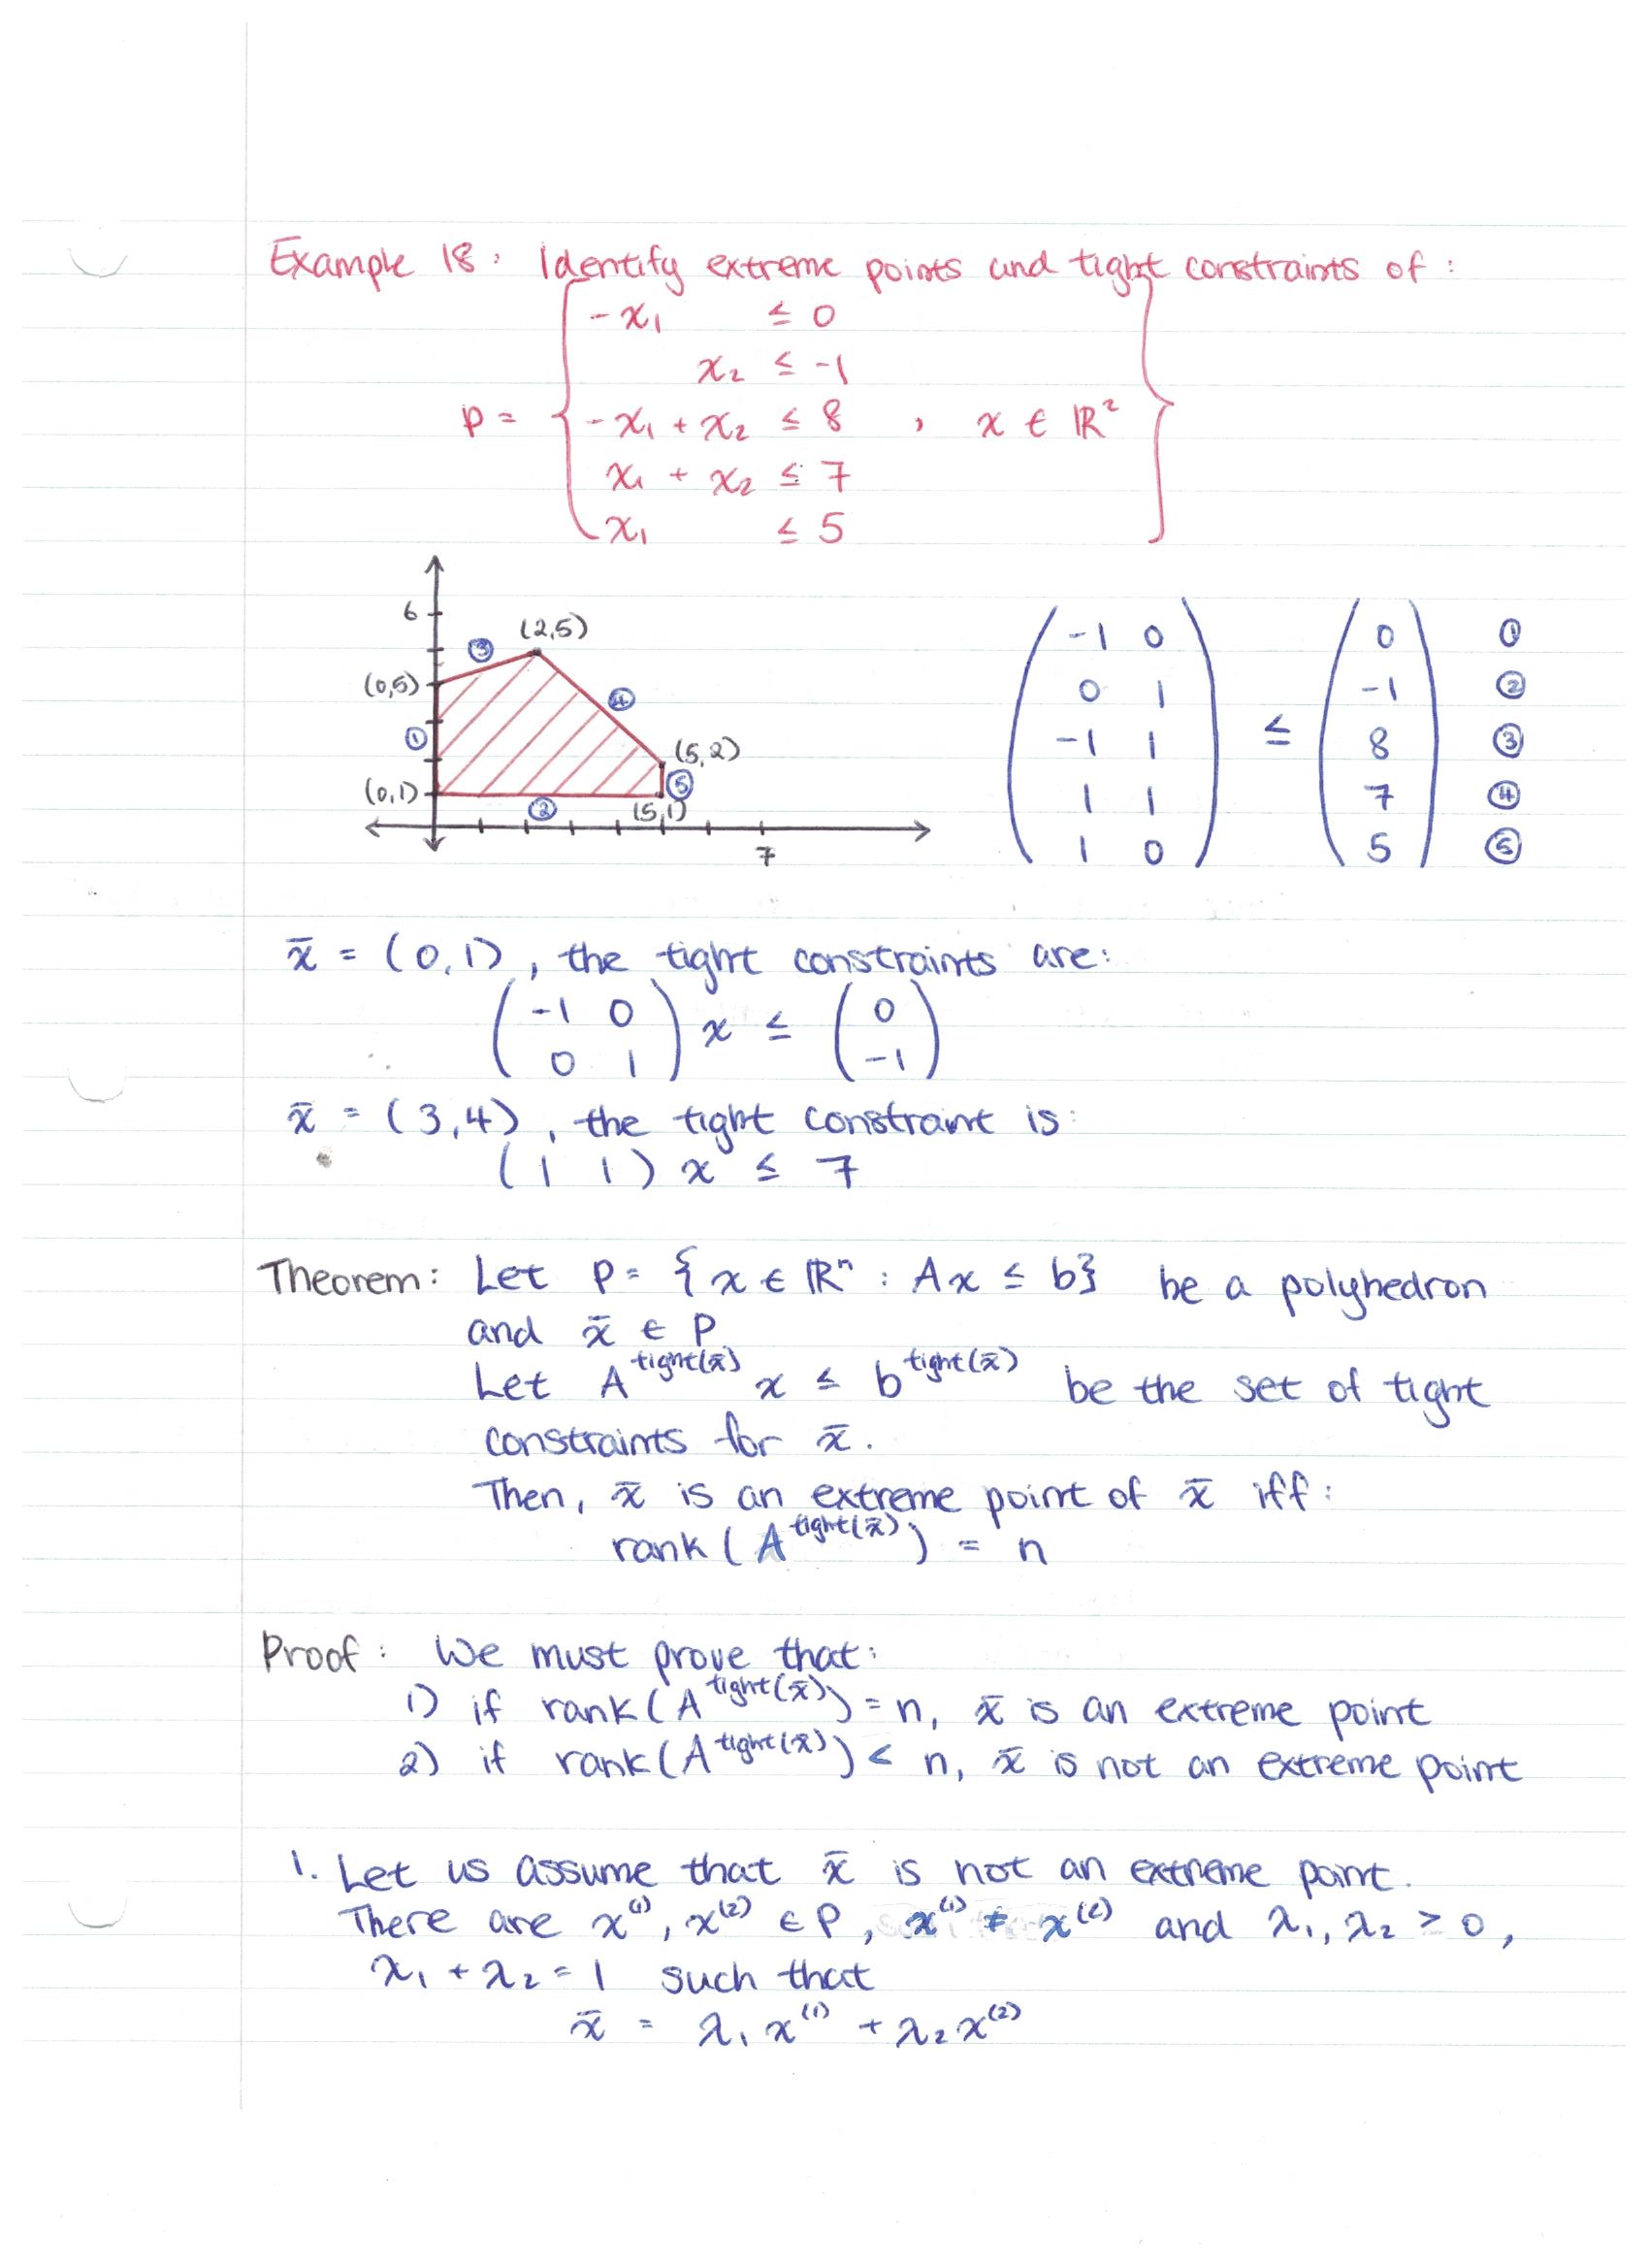 Example 18: Identify extreme points and tight constraints of:
-x₁ ≤ 0
x₂ ≤ -1
P = { -x₁ + x₂ ≤ 8 , x ∈ ℝ² }
x₁ + x₂ ≤ 7
x₁ ≤ 5
6
(2,5)
③
(0,5)
④
①
(5,2)
⑤
(0,1)
②
(5,1)
7
( -1 0 ) ( 0 ) ①
( 0 1 ) ( -1 ) ②
( -1 1 ) ≤ ( 8 ) ③
( 1 1 ) ( 7 ) ④
( 1 0 ) ( 5 ) ⑤
x̄ = (0,1), the tight constraints are:
( -1 0 ) x ≤ ( 0 )
( 0 1 ) ( -1 )
x̄ = (3,4), the tight constraint is:
( 1 1 ) x ≤ 7
Theorem: Let P = { x ∈ ℝⁿ : Ax ≤ b } be a polyhedron
and x̄ ∈ P
Let A^tight(x̄) x ≤ b^tight(x̄) be the set of tight
constraints for x̄.
Then, x̄ is an extreme point of x̄ iff:
rank(A^tight(x̄)) = n
Proof: We must prove that:
1) if rank(A^tight(x̄)) = n, x̄ is an extreme point
2) if rank(A^tight(x̄)) < n, x̄ is not an extreme point
1. Let us assume that x̄ is not an extreme point.
There are x⁽¹⁾, x⁽²⁾ ∈ P, x⁽¹⁾ ≠ x⁽²⁾ and λ₁, λ₂ > 0,
λ₁ + λ₂ = 1 such that
x̄ = λ₁x⁽¹⁾ + λ₂x⁽²⁾